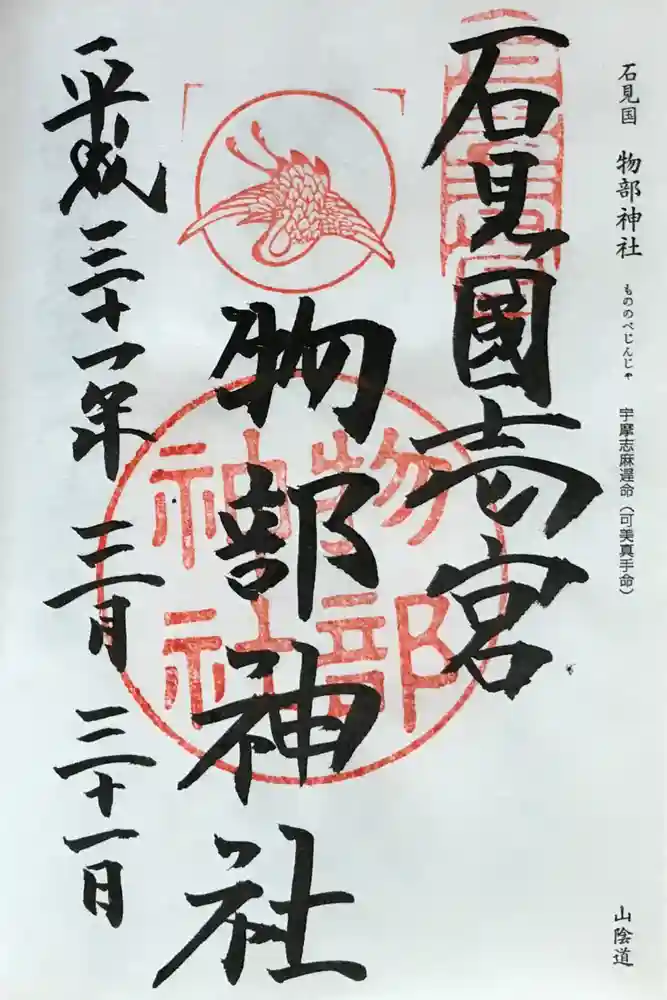 石見国 物部神社 もののべじんじゃ 宇摩志麻遅命（可美真手命）
山陰道
石見國一宮
物部神社
平成三十一年 三月 三十一日
物部
神社